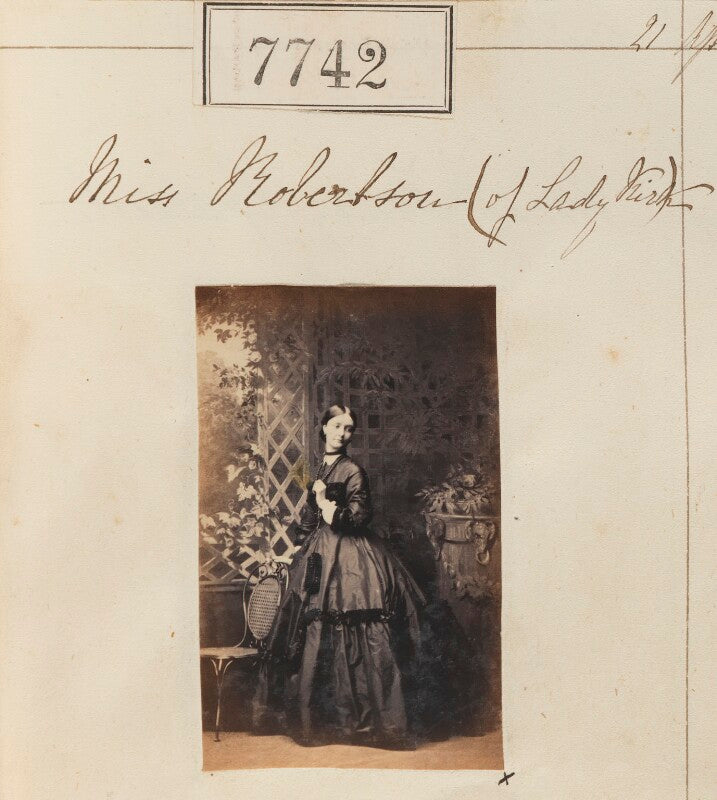 7742
21
Miss Robertson (of Lady Kirk)
x